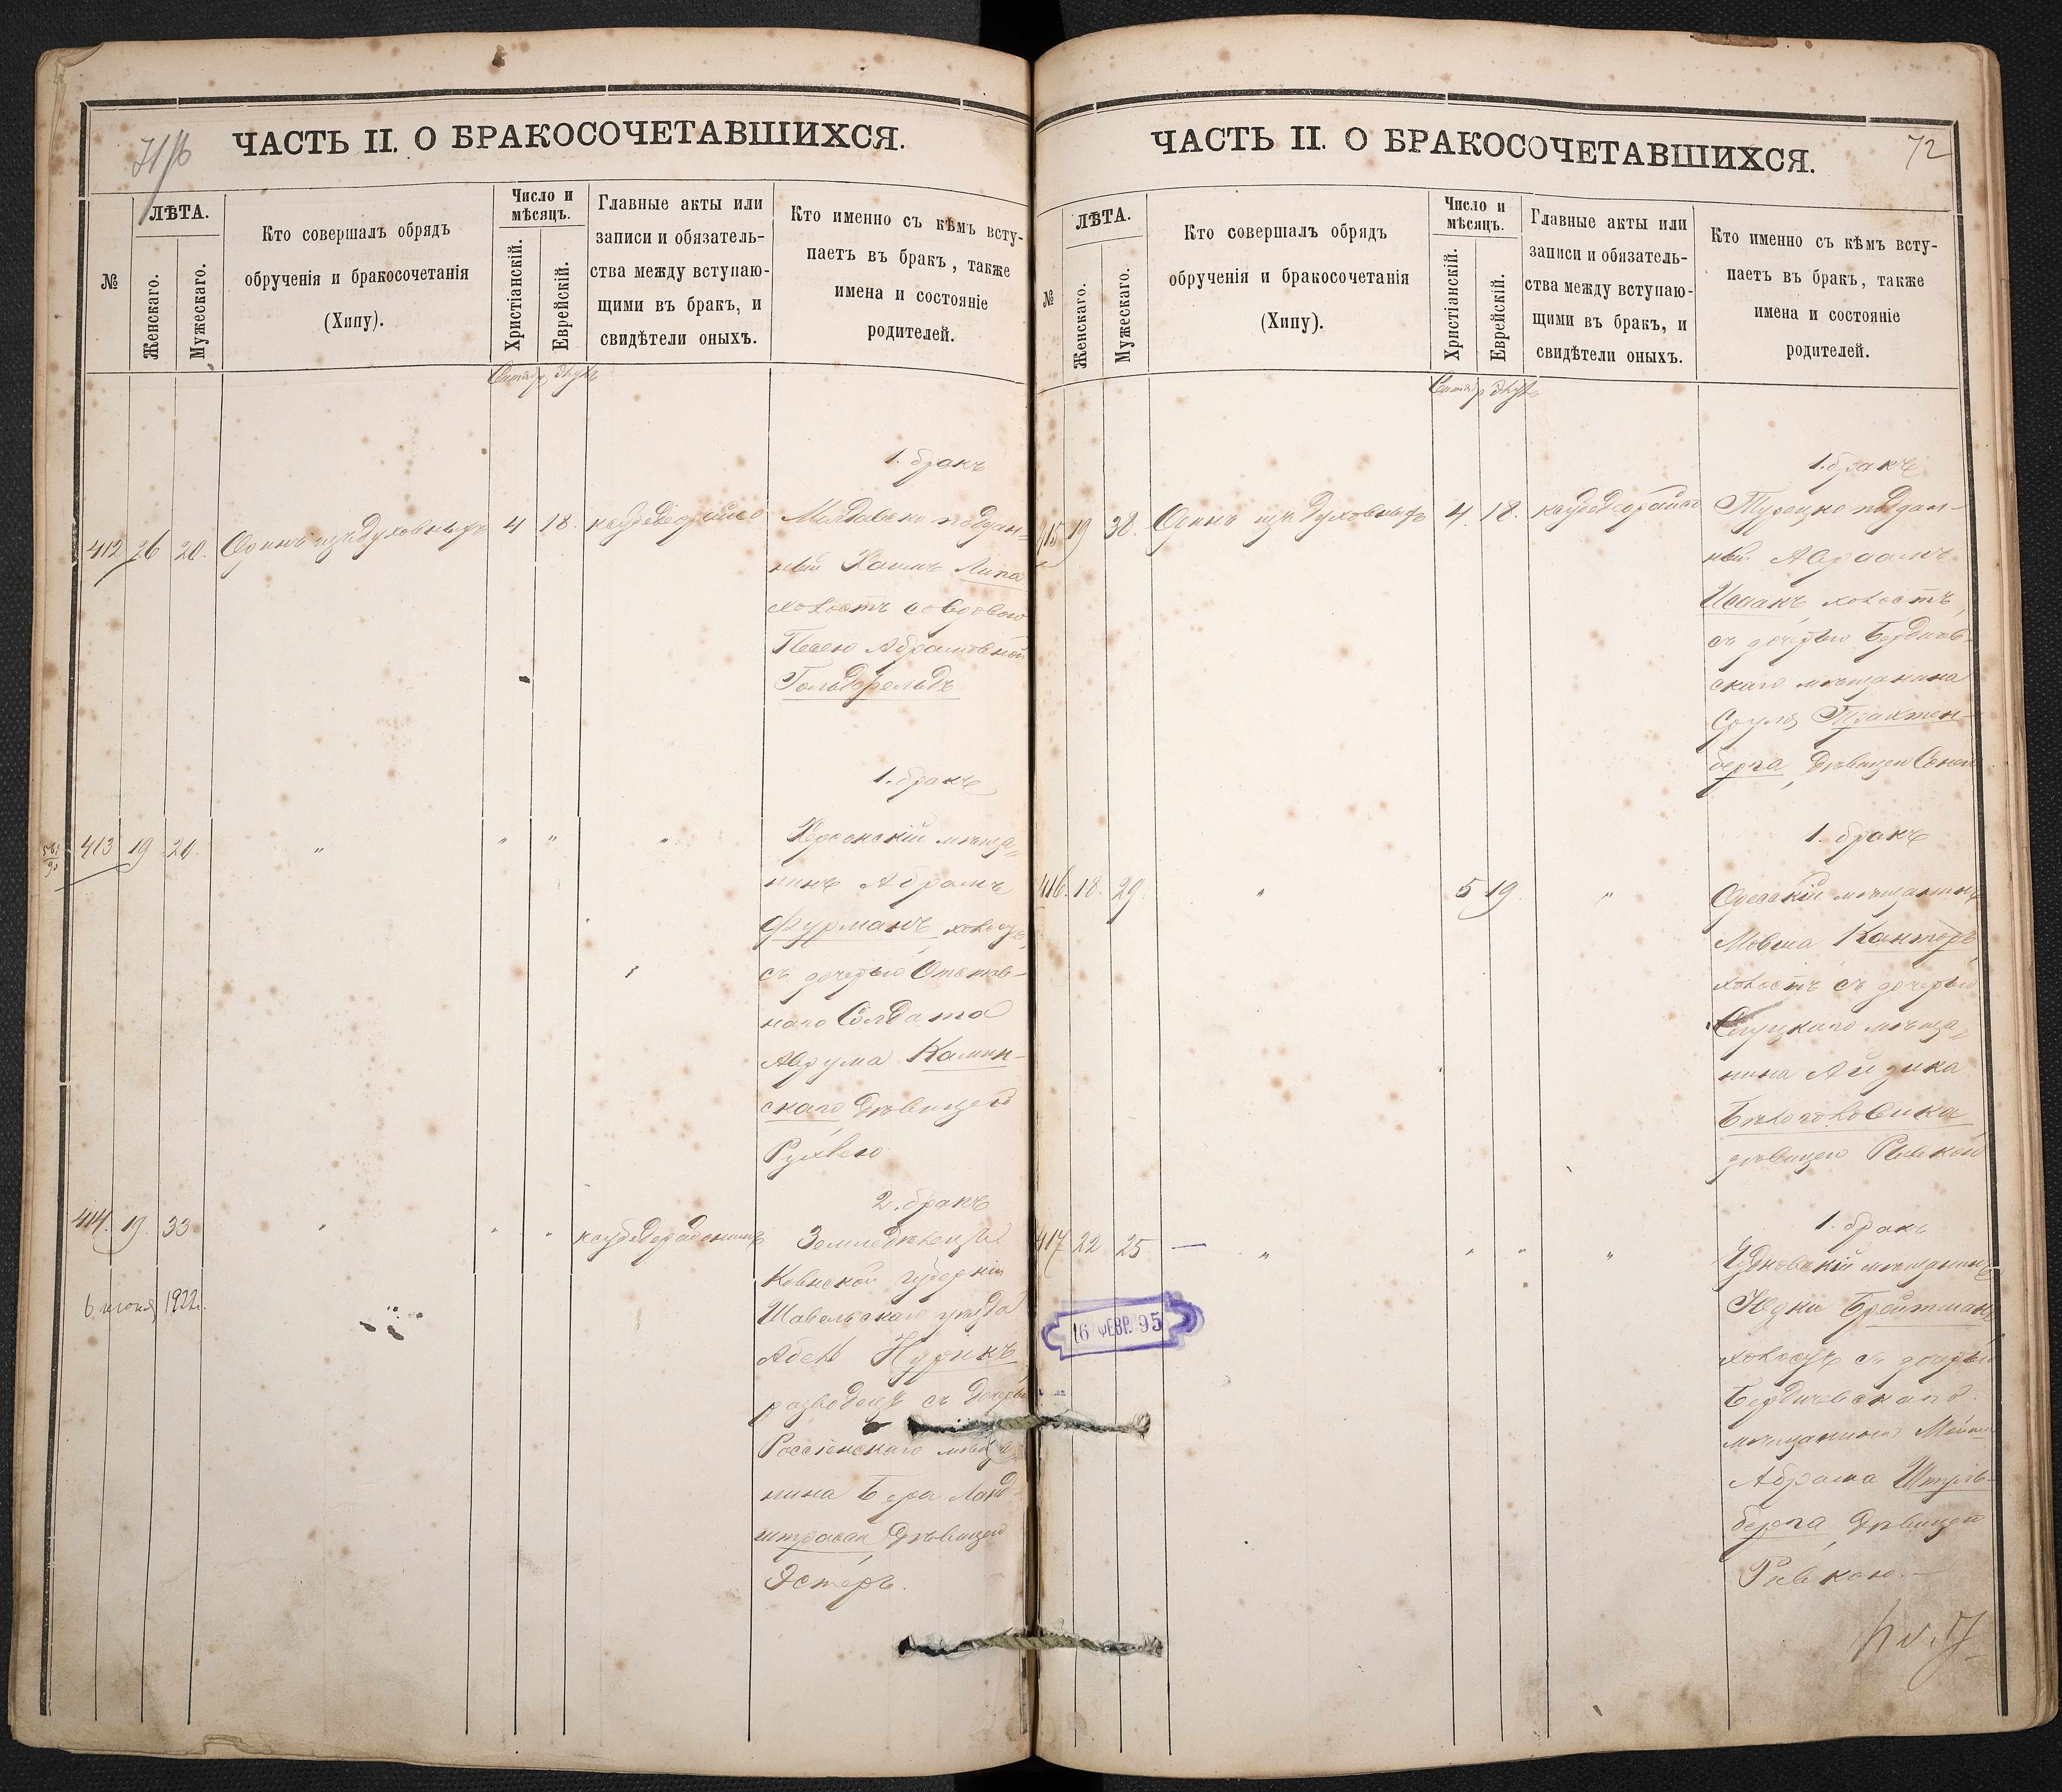 ЧАСТЬ II. О БРАКОСОЧЕТАВШИХСЯ.
№
ЛѢТА.
Женскаго.
Мужескаго.
Кто совершалъ обрядъ
обрученія и бракосочетанія
(Хипу).
Число и
мѣсяцъ.
Христіанскій.
Еврейскій.
Главные акты или
записи и обязатель-
ства между вступаю-
щими въ бракъ, и
свидѣтели оныхъ.
Кто именно съ кѣмъ всту-
паетъ въ бракъ, также
имена и состояніе
родителей.
1. бракъ
412 26 20. Одинъ изъ Духовныхъ 4 18.
Молдавско поддан-
ный Хаимъ Липа
холостъ со вдовою
Песею Абрамовной
Гольдфельдъ
1. бракъ
413 19 21. " " " "
Херсонскій мѣща-
нинъ Абрамъ
Фурманъ, холостъ,
съ дочерью Отстав-
наго Солдата
Аврума Камин-
скаго дѣвицею
Рухлею
2. бракъ
414. 19. 33 " " "
Земледѣлецъ
Ковенской губерніи
Шавельскаго уѣзда
Абель Нурикъ
разводецъ съ дочерью
Россіенскаго мѣща-
нина Бера Ланд-
штрасса дѣвицею
Эстеръ.
6 июня 1922.
ЧАСТЬ II. О БРАКОСОЧЕТАВШИХСЯ.
72
№
ЛѢТА.
Женскаго.
Мужескаго.
Кто совершалъ обрядъ
обрученія и бракосочетанія
(Хипу).
Число и
мѣсяцъ.
Христіанскій.
Еврейскій.
Главные акты или
записи и обязатель-
ства между вступаю-
щими въ бракъ, и
свидѣтели оныхъ.
Кто именно съ кѣмъ всту-
паетъ въ бракъ, также
имена и состояніе
родителей.
1. бракъ
415 19 38. Одинъ изъ Духовныхъ 4. 18.
Турецко поддан-
ный Авраамъ
Исаакъ, холостъ,
съ дочерью Бердичев-
скаго мѣщанина
Сруля Трахтен-
берга, дѣвицею
1. бракъ
416. 18. 29. " 5 19 "
Одесскій мѣщанинъ
Мовша Канторъ,
холостъ съ дочерью
Слуцкаго мѣща-
нина Айзика
Бѣлоголовика
дѣвицею Ривкой
1. бракъ
417 22 25 — " " " "
Чудновскій мѣщанинъ
Юдки Бройтманъ,
холостъ съ дочерью
Бердичевскаго
мѣщанина
Абрама
берга, дѣвицею
Ривкою. —
16 ФЕВР. 95